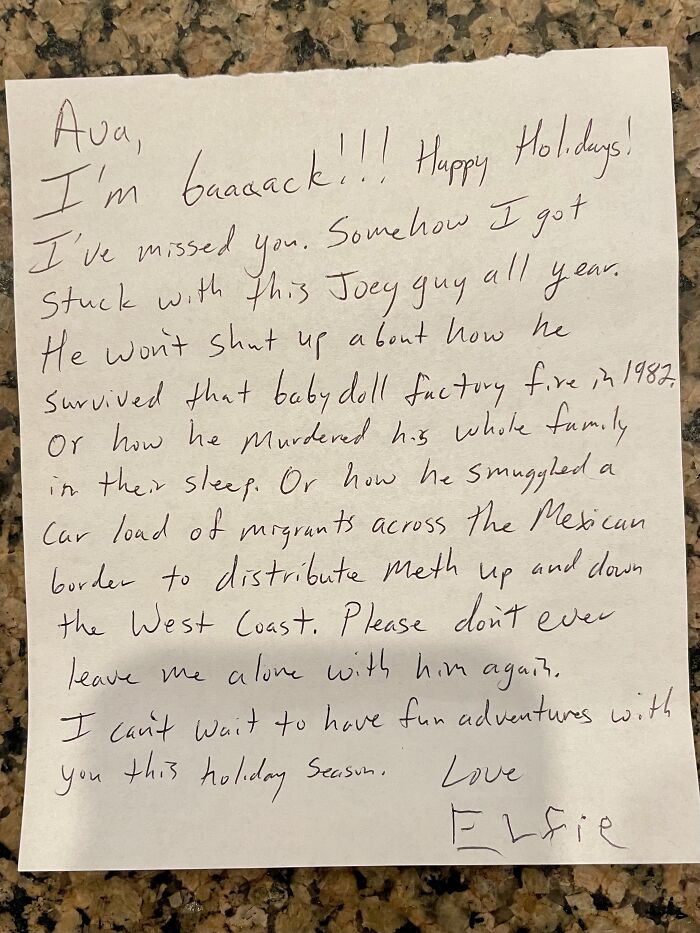 Ava,
I'm baaaack!!! Happy Holidays!
I've missed you. Somehow I got
stuck with this Joey guy all year.
He won't shut up about how he
survived that baby doll factory fire in 1982.
Or how he murdered his whole family
in their sleep. Or how he smuggled a
car load of migrants across the Mexican
border to distribute meth up and down
the West Coast. Please don't ever
leave me alone with him again.
I can't wait to have fun adventures with
you this holiday season. Love
ELfie